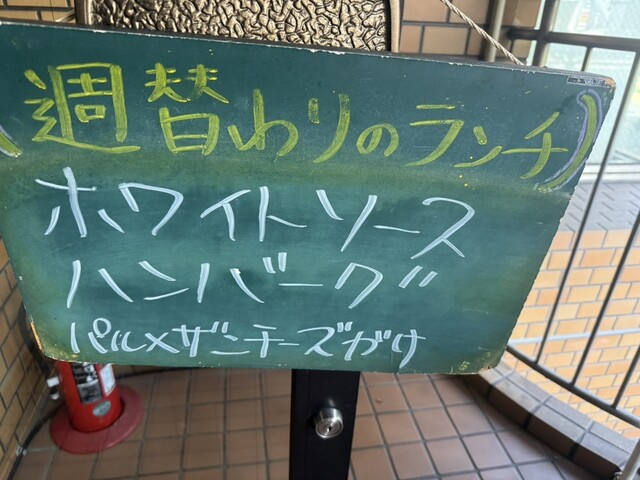 (週替わりのランチ)
ホワイトソース
ハンバーグ
パルメザンチーズがけ